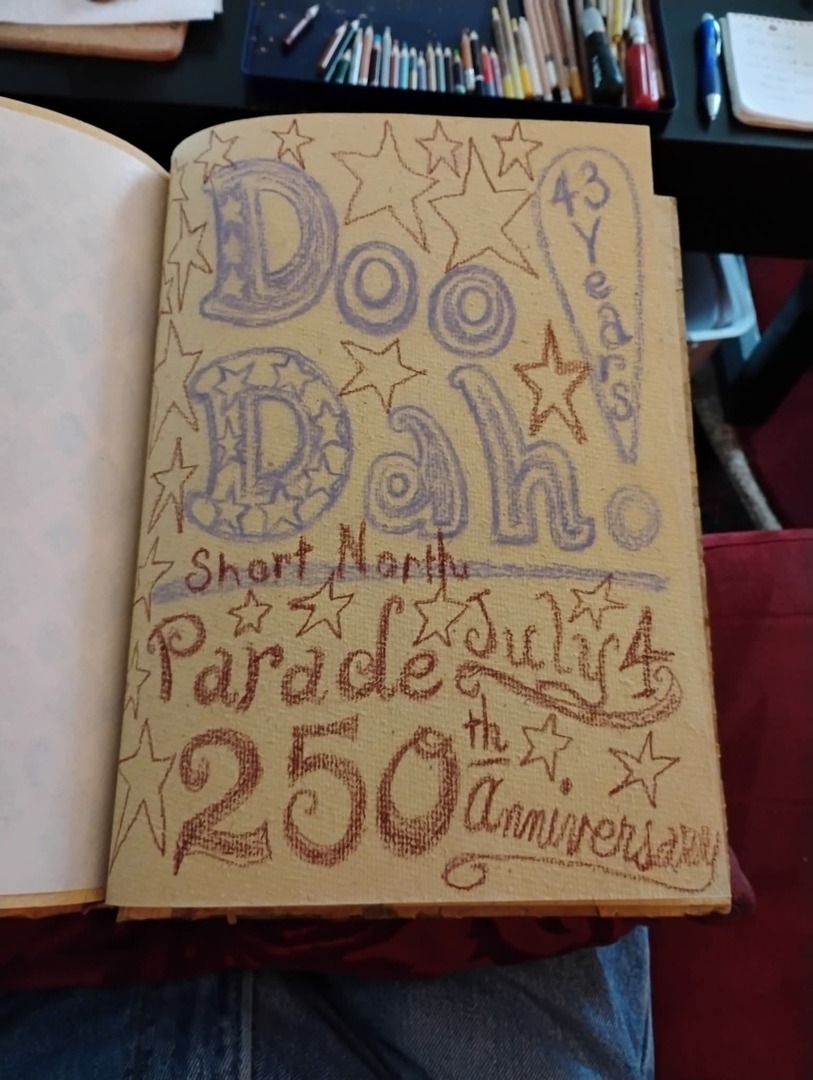 Doo
43 Years
Dah!
Short North
Parade July 4
250th
Anniversary